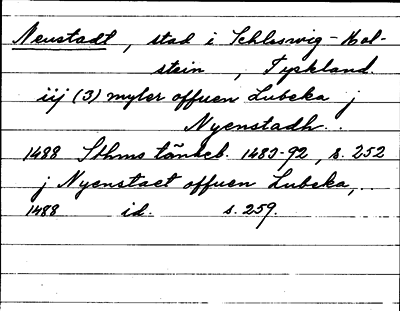 Neustadt, stad i Schleswig-Hol-
stein, Tyskland.
iij (3) myler offuen Lubeka j
Nyenstadh..
1488 Sthms tänkeb. 1483-92, s. 252
j Nyenstaet offuen Lubeka,..
1488 id. s. 259.